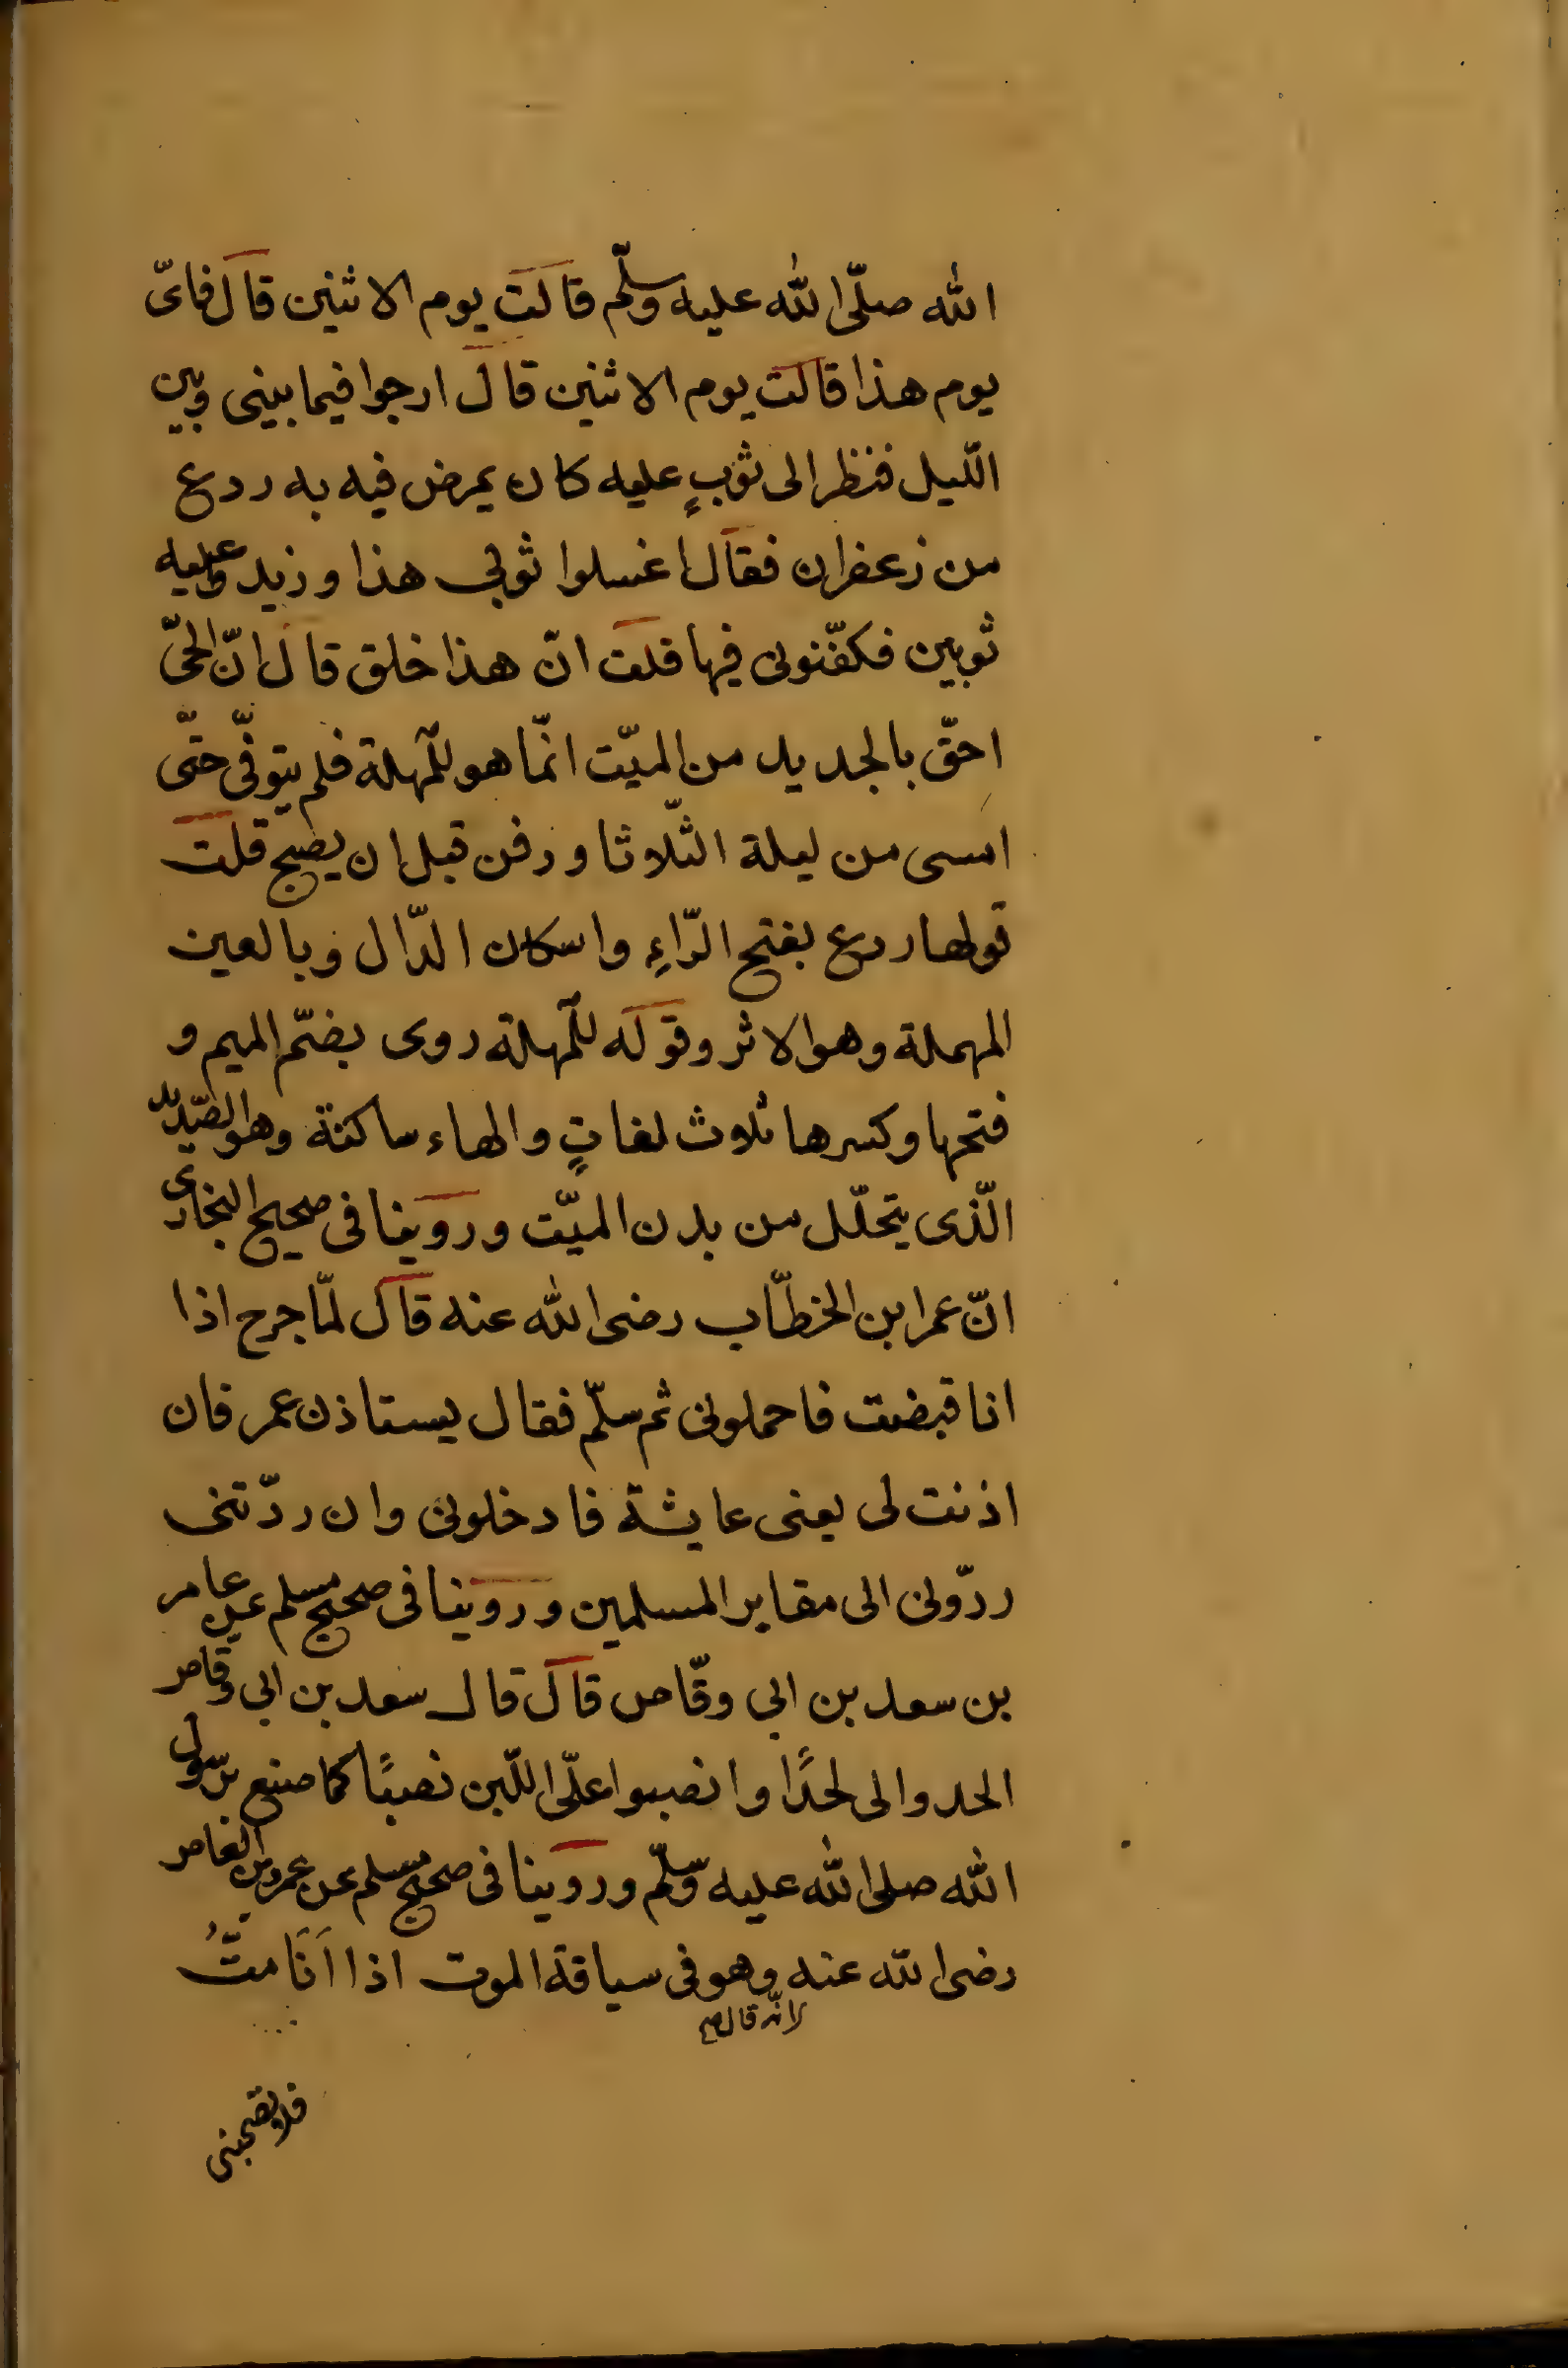 الله صلّى الله عليه وسلّم قالت يوم الاثنين قال فاىّ
يوم هذا قالت يوم الاثنين قال ارجوا فيما بينى وبين
اللّيل فنظر الى ثوبٍ عليه كان يمرض فيه به ردع
من زعفران فقال اغسلوا ثوبى هذا وزيدوا عليه
ثوبين فكفّنونى فيها قلت انّ هذا خلق قال انّ الحىّ
احقّ بالجديد من الميّت انّما هو للمهلة فلم يتوفّى حتّى
امسى من ليلة الثّلاثا ودفن قبل ان يصبح قلت
قولها ردع بفتح الرّاءِ واسكان الدّال وبالعين
المهملة وهو الاثر وقوله للمهلة روى بضمّ الميم و
فتحها وكسرها ثلاث لغاتٍ والهاء ساكنة وهو الصّديد
الّذى يتحلّل من بدن الميّت وروينا فى صحيح البخارى
انّ عمر ابن الخطّاب رضى الله عنه قال لمّا جرح اذا
انا قبضت فاحملونى ثم سلّم فقال يستاذن عمر فان
اذنت لى يعنى عايشة فادخلونى وان ردّتنى
ردّونى الى مقابر المسلمين وروينا فى صحيح مسلم عن عامر
بن سعد بن ابى وقّاص قال قال سعد بن ابى وقاص
الحدوا لى لحدًا وانصبوا علىّ اللّبن نصبًا كما صنع برسول
الله صلى الله عليه وسلّم وروينا فى صحيح مسلم عن عمرو بن العاص
رضى الله عنه وهو فى سياقة الموت اذا اَنَا متُّ
لانّه قال
فلا تصحبنى